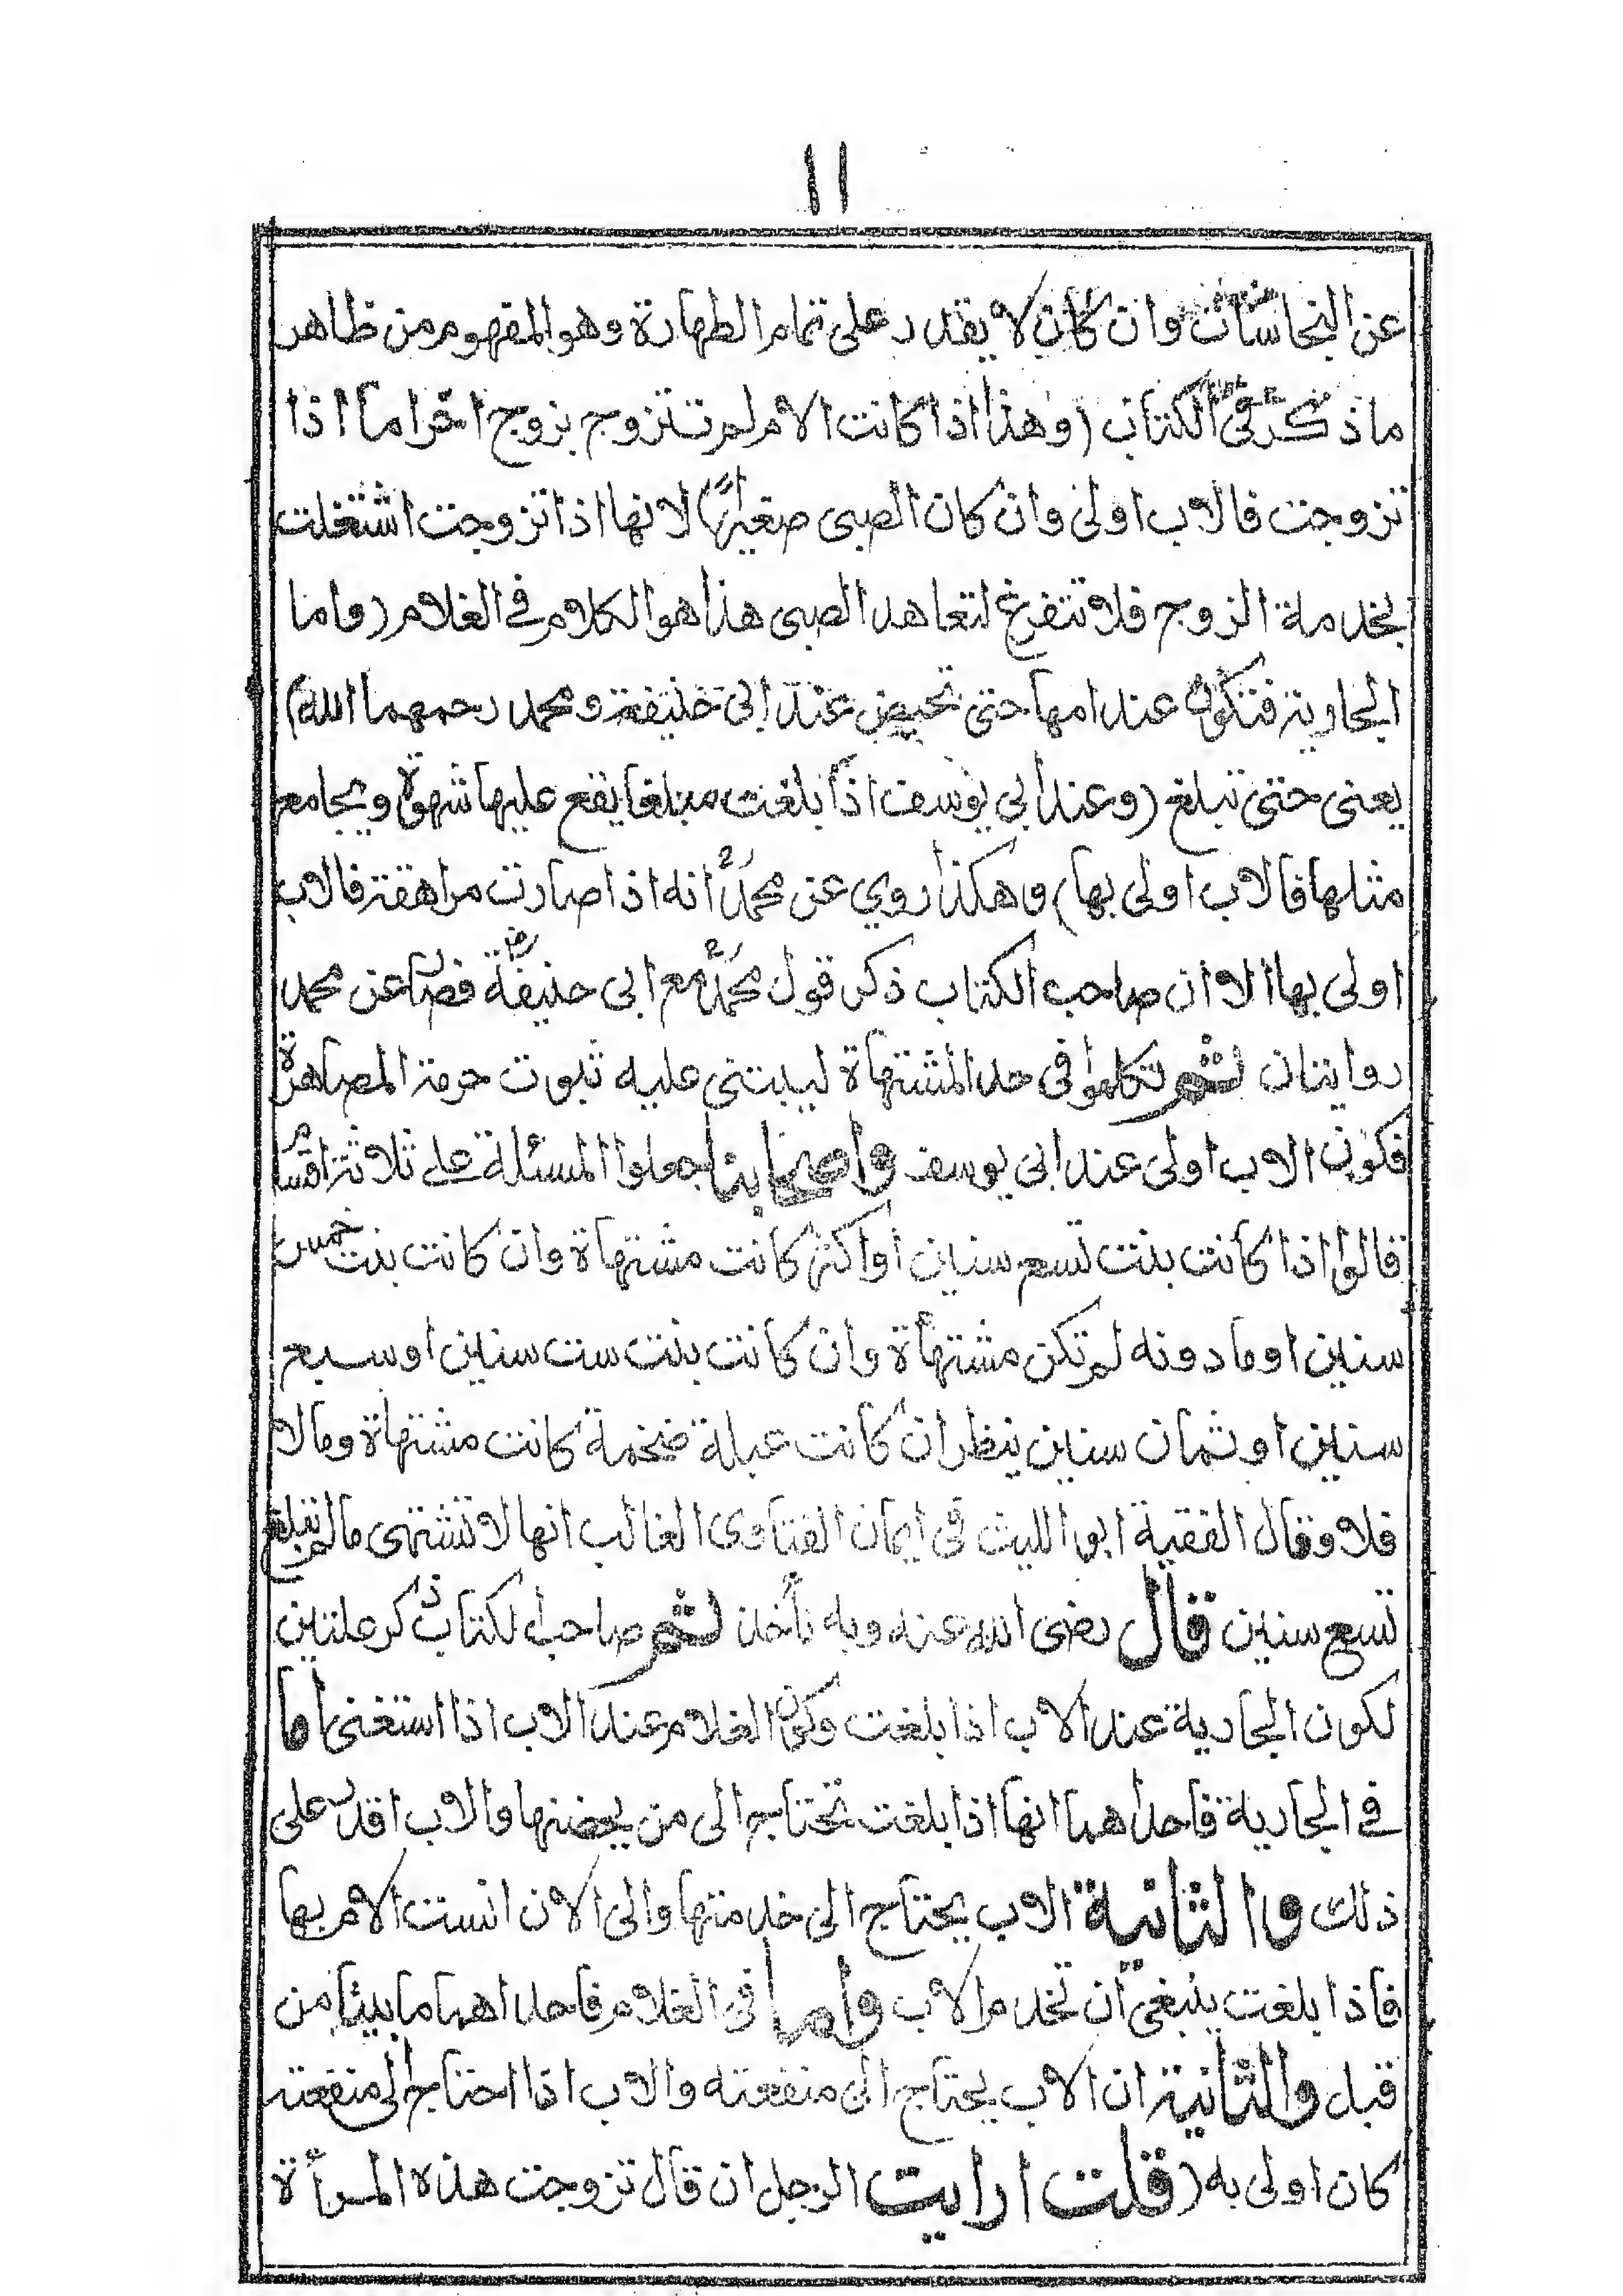 ١١
عن النجاسات وان كان لا يقدر على تمام الطهارة وهو المفهوم من ظاهر
ما ذكر فى الكتاب (وهذا اذا كانت الام لم تتزوج بزوج اخر اما اذا
تزوجت فالاب اولى وان كان الصبى صغيرا) لانها اذا تزوجت اشتغلت
بخدمة الزوج فلا تتفرغ لتعاهد الصبى هذا هو الكلام فى الغلام (واما
الجارية فتكون عند امها حتى تحيض عند ابى حنيفة و محمد رحمهما الله)
يعنى حتى تبلغ (وعند ابي يوسف اذا بلغت مبلغا يقع عليها شهوة ويجامع
مثلها فالاب اولى بها) وهكذا روي عن محمدؒ انه اذا صارت مراهقة فالاب
اولى بها الا ان صاحب الكتاب ذكر قول محمدؒ مع ابى حنيفةؓ فصار عن محمد
روايتان ثم تكلموا فى حد المشتهاة ليبتنى عليه ثبوت حرمة المصاهرة
فكون الاب اولى عند ابى يوسف واصحابنا جعلوا المسئلة على ثلاثة اقسام
قالوا اذا كانت بنت تسع سنين او اكثر كانت مشتهاة وان كانت بنت خمس
سنين او ما دونه لم تكن مشتهاة وان كانت بنت ست سنين او سبع
سنين او ثمان سنين ينظر ان كانت عبلة ضخمة كانت مشتهاة وما لا
فلا وقال الفقيه ابو الليث فى ايمان الفتاوى الغالب انها لا تشتهى ما لم تبلغ
تسع سنين قال رضى الله عنه وبه ناخذ ثم صاحب الكتاب ذكر علتين
لكون الجارية عند الاب اذا بلغت وكون الغلام عند الاب اذا استغنى اما
فى الجارية فاحداهما انها اذا بلغت تحتاج الى من يحضنها والاب اقدر على
ذلك والثانية الاب يحتاج الى خدمتها والى الان انست الام بها
فاذا بلغت ينبغى ان تخدم الاب واما فى الغلام فاحداهما ما بينا من
قبل والثانية ان الاب يحتاج الى منفعته والاب اذا احتاج الى منفعته
كان اولى به (قلت ارايت الرجل ان قال تزوجت هذه المرأة